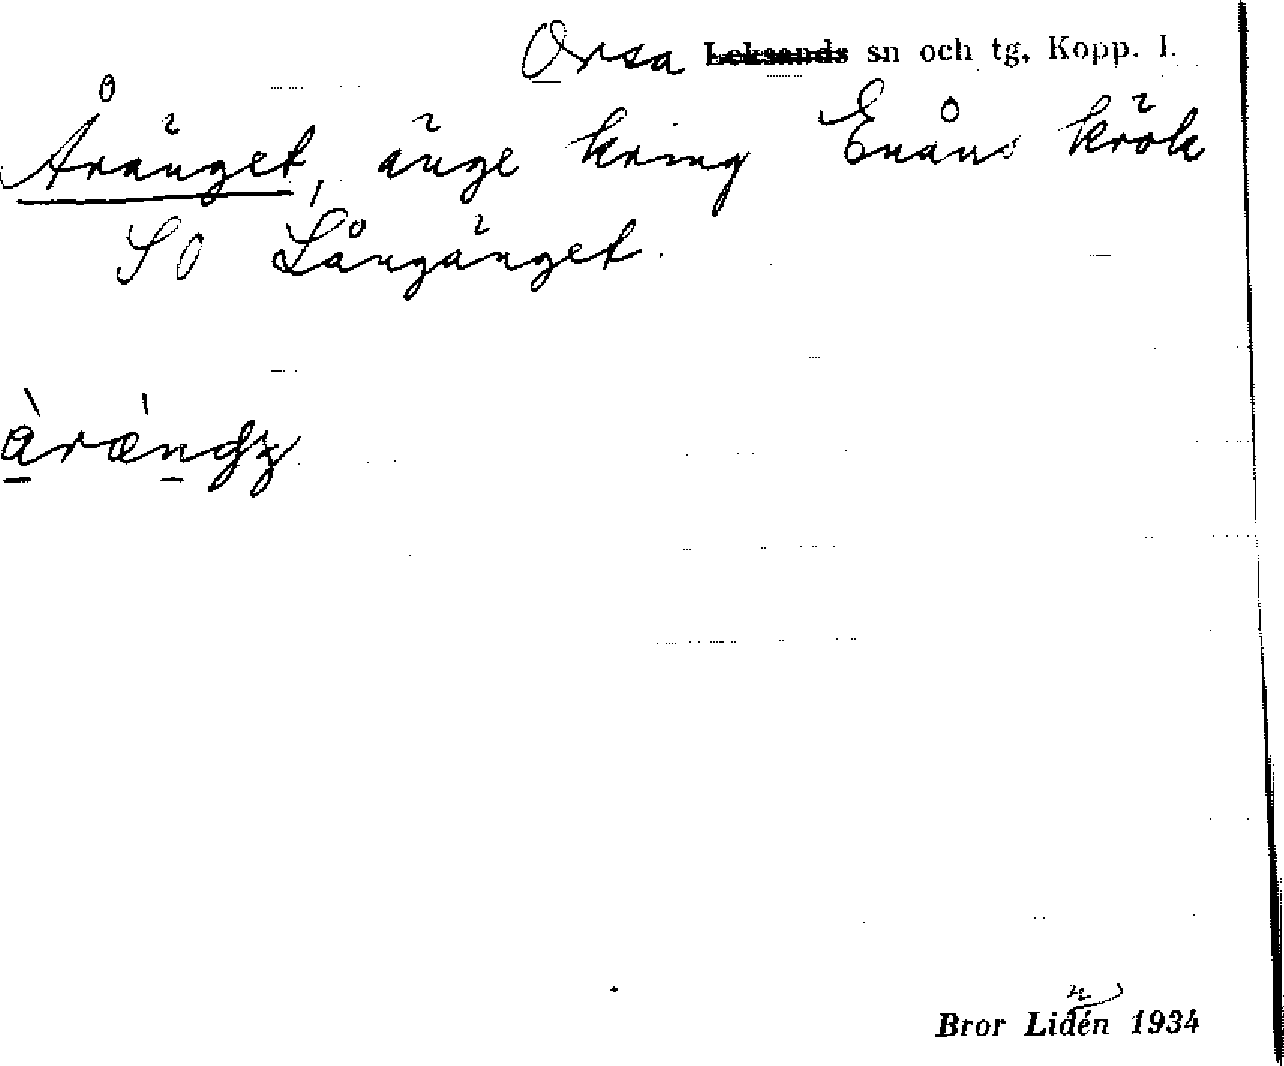 Orsa Leksands sn och tg, Kopp. l.
Åränget, änge kring Enåns krök
SO Långänget.
Bror Lidén 1934